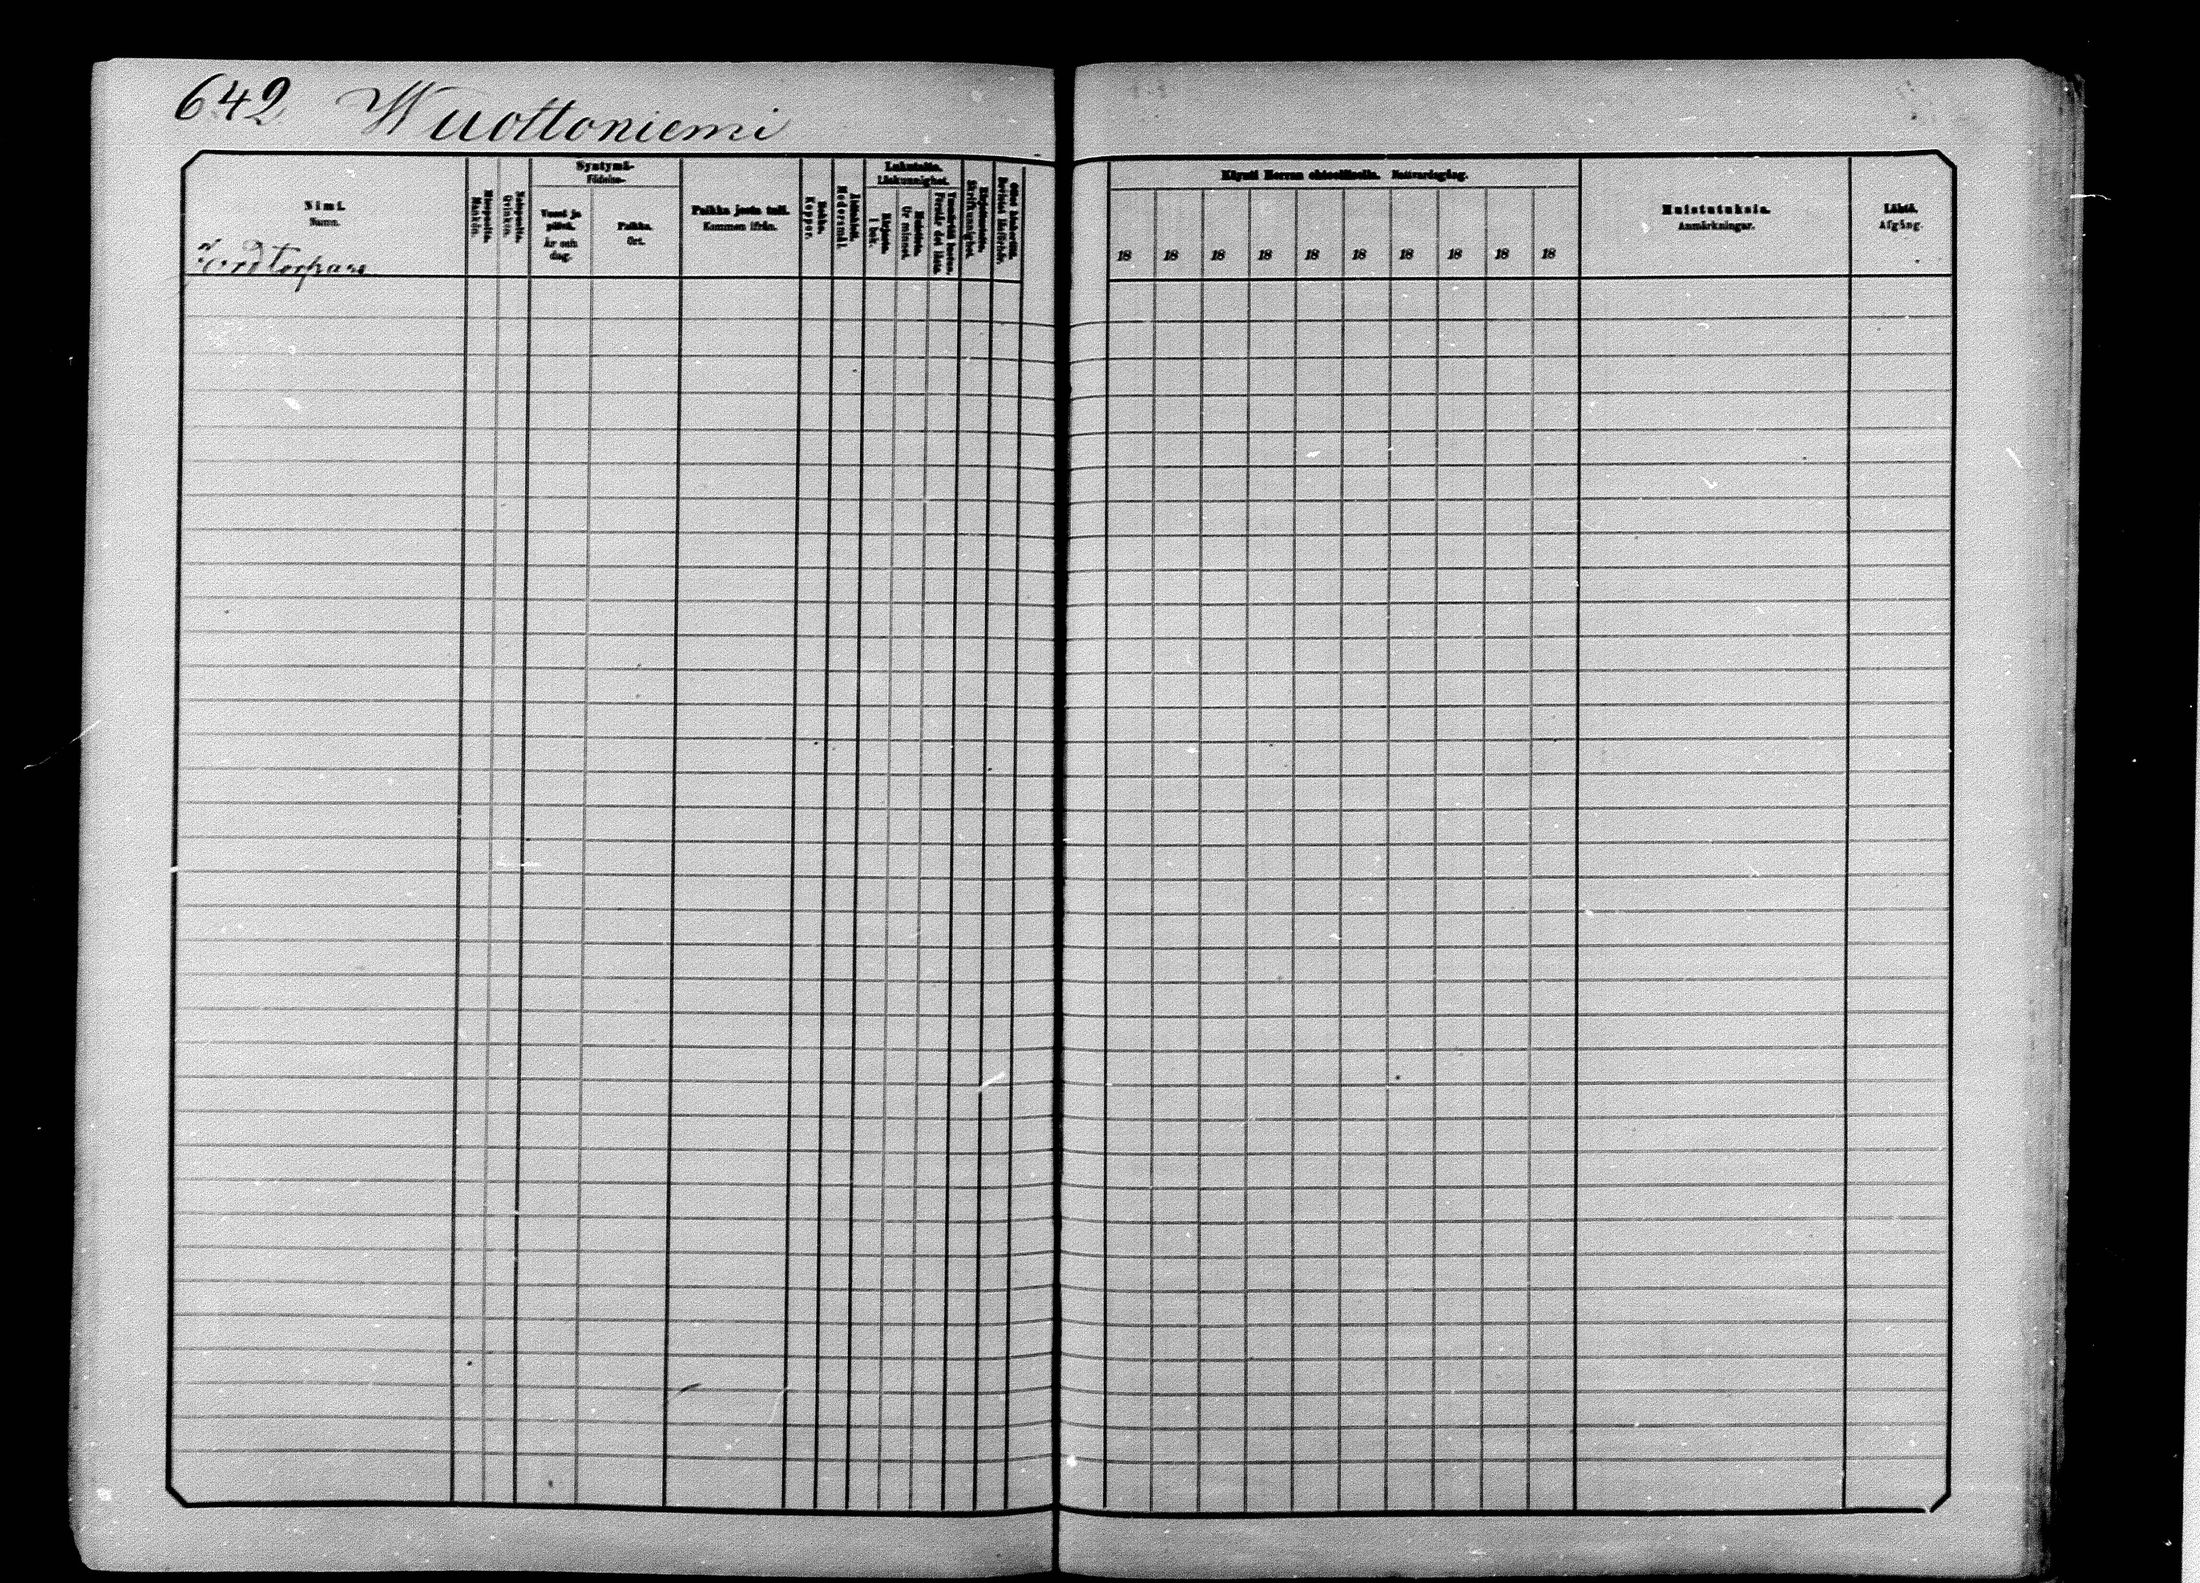 642 Wuottoniemi
Nimi.
Namn.
Miespuolia.
Mankön.
Vaimopuolia.
Qvinkön.
Syntymä-
Födelse-
Vuosi ja
päivä.
År och
dag.
Paikka.
Ort.
Paikka josta tuli.
Kommen ifrån.
Rokko.
Koppor.
Äidinkieli.
Modersmål.
Lukutaito.
Läskunnighet.
Kirjasta.
I bok.
Ur minnet.
Förstår det lästa.
Kirjoitustaito.
Skrifkunnighet.
Käynti Herran ehtoollisella. Nattvardsgång.
18 18 18 18 18 18 18 18 18 18
Muistutuksia.
Anmärkningar.
Lähtö.
Afgång.